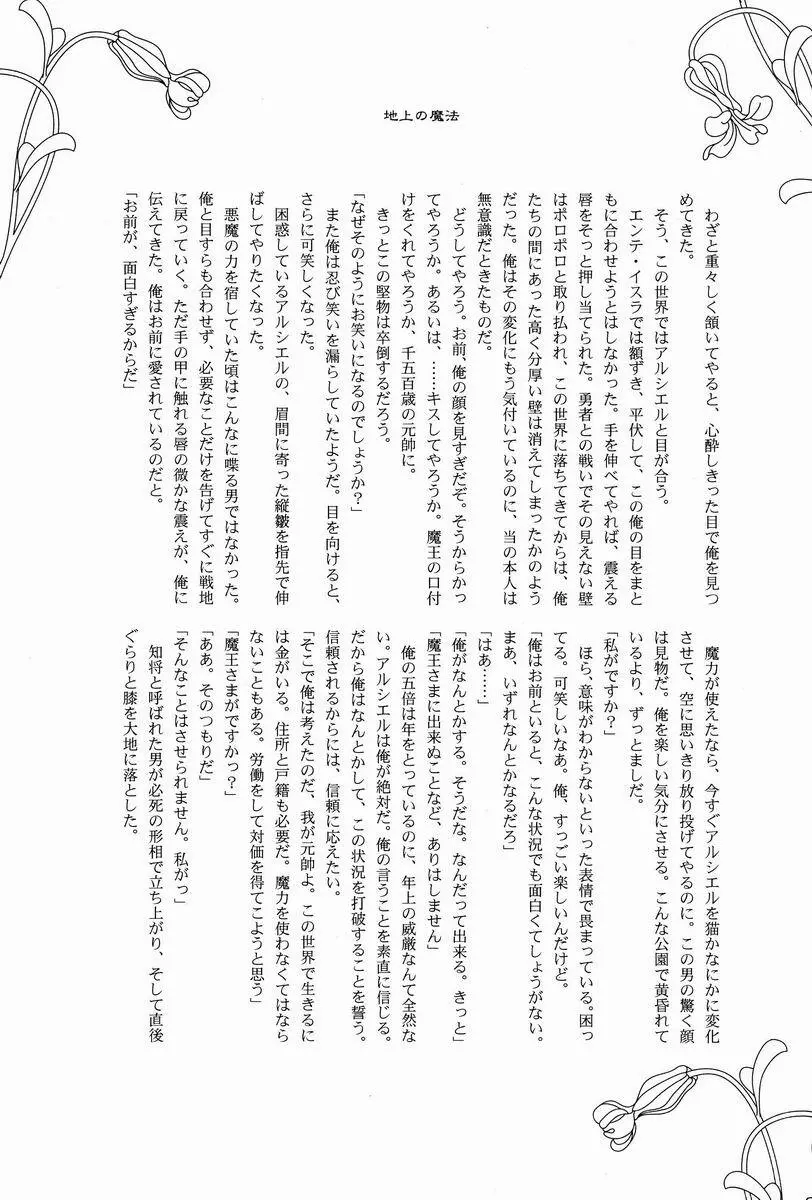 地上の魔法
わざと重々しく頷いてやると、心酔しきった目で俺を見つ
めてきた。
そう、この世界ではアルシエルと目が合う。
エンテ・イスラでは額ずき、平伏して、この俺の目をまと
もに合わせようとはしなかった。手を伸べてやれば、震える
唇をそっと押し当てられた。勇者との戦いでその見えない壁
はポロポロと取り払われ、この世界に落ちてきてからは、俺
たちの間にあった高く分厚い壁は消えてしまったかのよう
だった。俺はその変化にもう気付いているのに、当の本人は
無意識だときたものだ。
どうしてやろう。お前、俺の顔を見すぎだぞ。そうからかっ
てやろうか。あるいは、……キスしてやろうか。魔王の口付
けをくれてやろうか、千五百歳の元帥に。
きっとこの堅物は卒倒するだろう。
「なぜそのようにお笑いになるのでしょうか？」
また俺は忍び笑いを漏らしていたようだ。目を向けると、
さらに可笑しくなった。
困惑しているアルシエルの、眉間に寄った縦皺を指先で伸
ばしてやりたくなった。
悪魔の力を宿していた頃はこんなに喋る男ではなかった。
俺と目すらも合わせず、必要なことだけを告げてすぐに戦地
に戻っていく。ただ手の甲に触れる唇の微かな震えが、俺に
伝えてきた。俺はお前に愛されているのだと。
「お前が、面白すぎるからだ」
魔力が使えたなら、今すぐアルシエルを猫かなにかに変化
させて、空に思いきり放り投げてやるのに。この男の驚く顔
は見物だ。俺を楽しい気分にさせる。こんな公園で黄昏れて
いるより、ずっとましだ。
「私がですか？」
ほら、意味がわからないといった表情で畏まっている。困っ
てる。可笑しいなあ。俺、すっごい楽しいんだけど。
「俺はお前といると、こんな状況でも面白くてしょうがない。
まあ、いずれなんとかなるだろ」
「はあ……」
「俺がなんとかする。そうだな。なんだって出来る。きっと」
「魔王さまに出来ぬことなど、ありはしません」
俺の五倍は年をとっているのに、年上の威厳なんて全然な
い。アルシエルは俺が絶対だ。俺の言うことを素直に信じる。
だから俺はなんとかして、この状況を打破することを誓う。
信頼されるからには、信頼に応えたい。
「そこで俺は考えたのだ、我が元帥よ。この世界で生きるに
は金がいる。住所と戸籍も必要だ。魔力を使わなくてはなら
ないこともある。労働をして対価を得てこようと思う」
「魔王さまがですかっ？」
「ああ。そのつもりだ」
「そんなことはさせられません。私がっ」
知将と呼ばれた男が必死の形相で立ち上がり、そして直後
ぐらりと膝を大地に落とした。